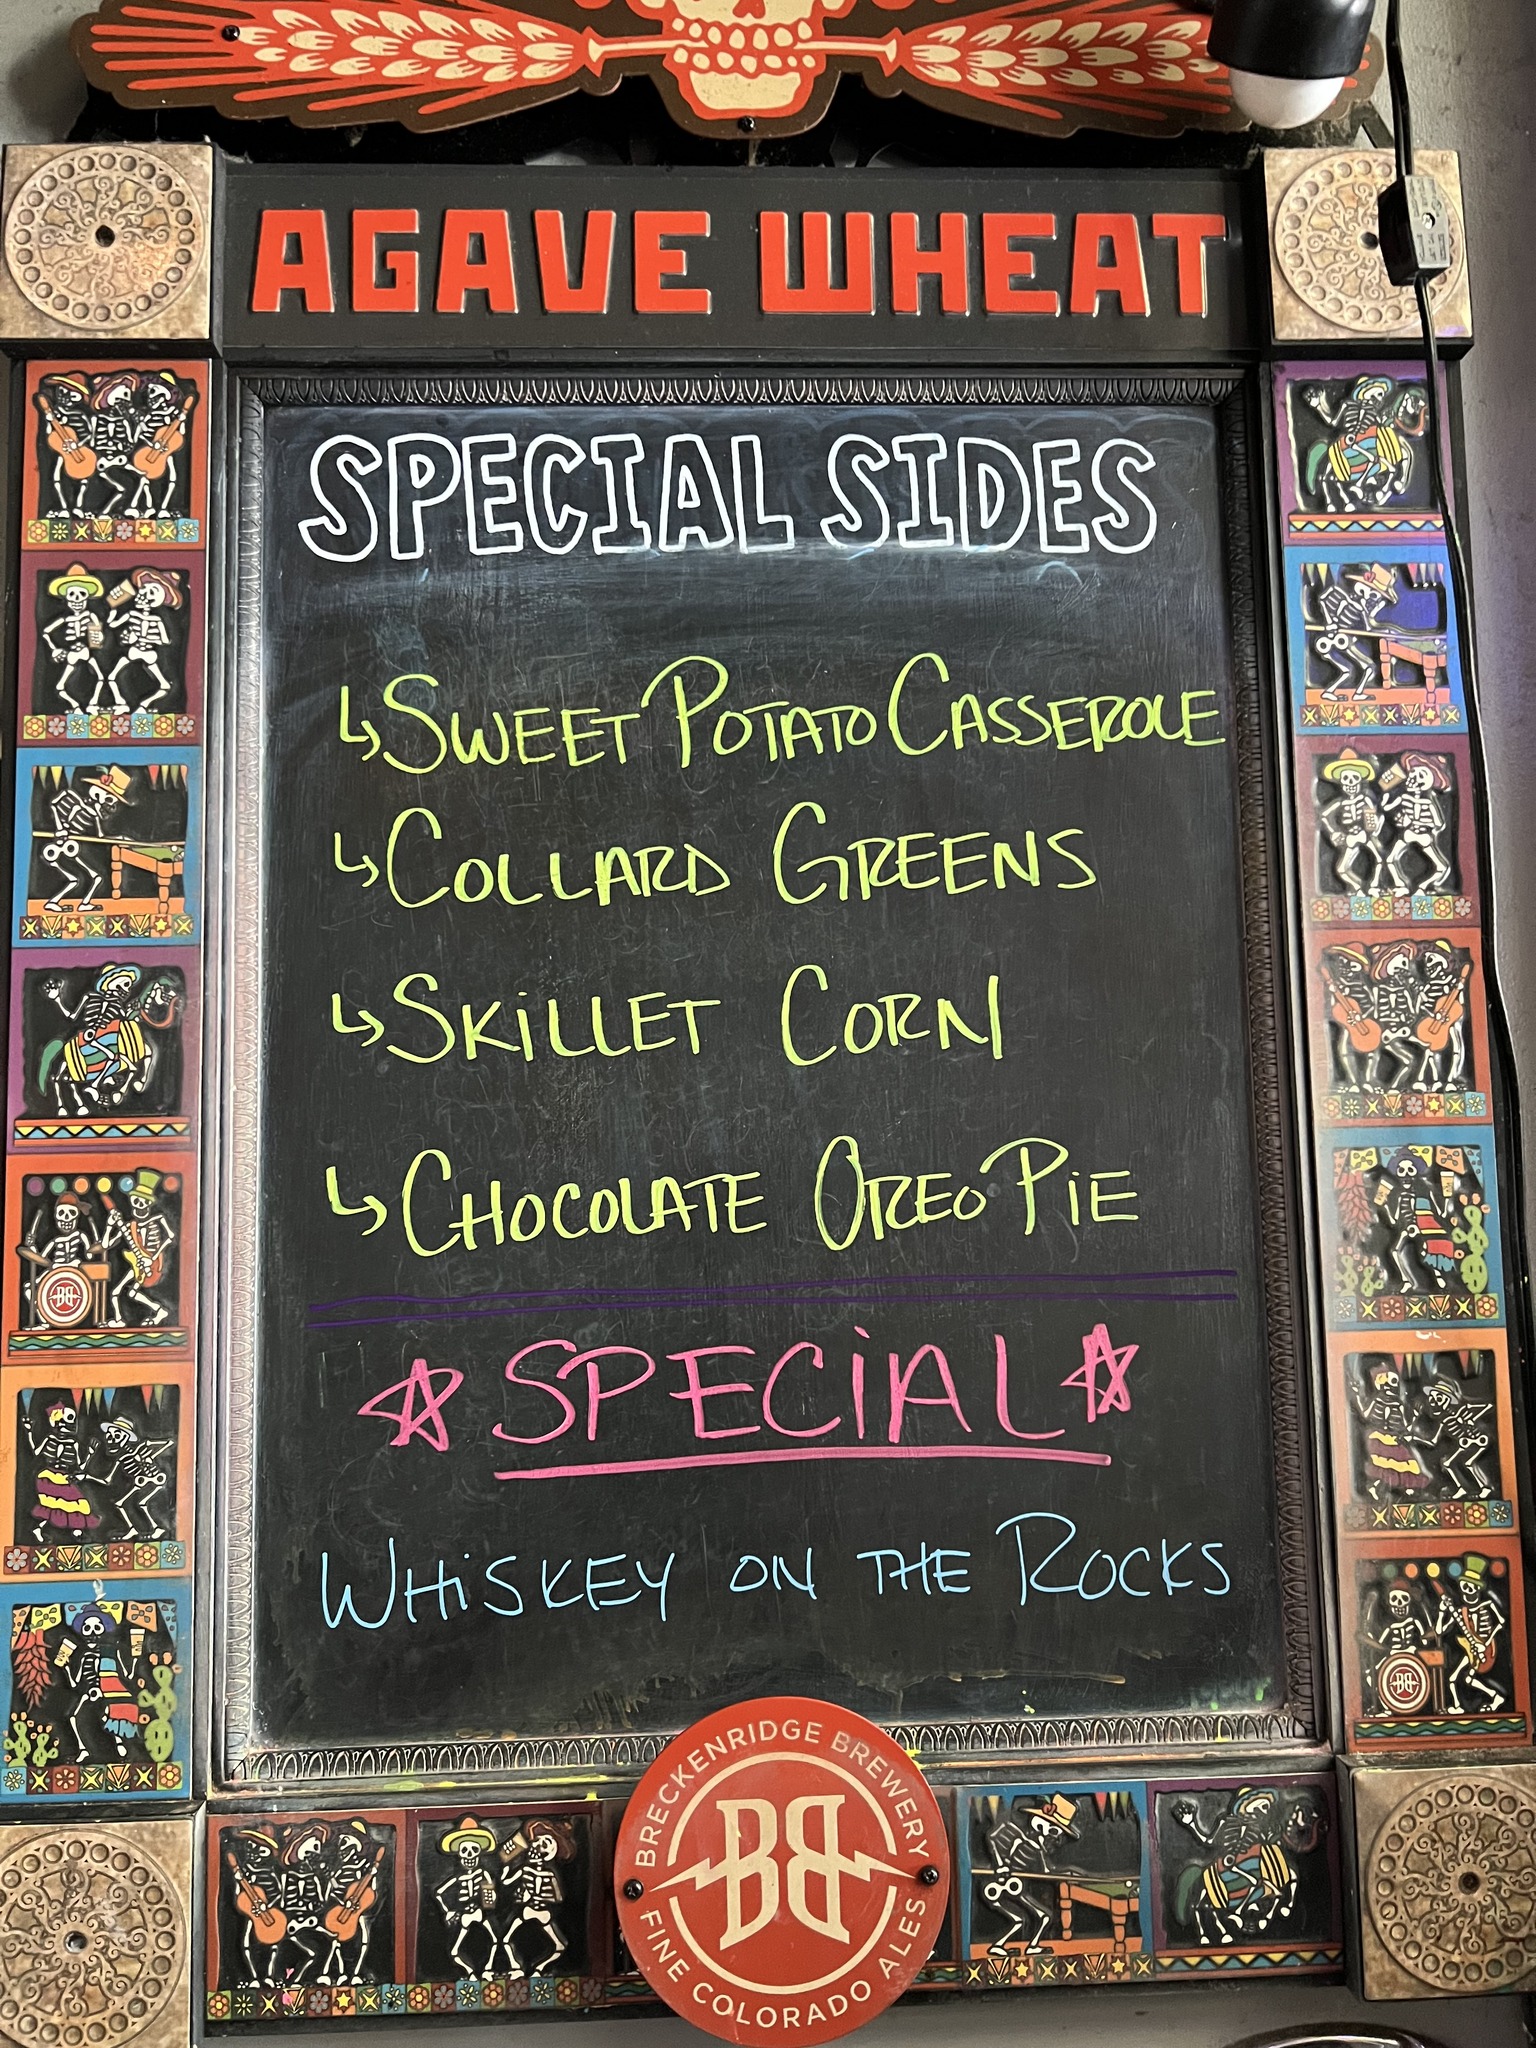 AGAVE WHEAT
SPECIAL SIDES
↳ SWEET POTATO CASSEROLE
↳ COLLARD GREENS
↳ SKiLLET CORN
↳ CHOCOLATE OREO PiE
☆ SPECiAL ☆
WHiSKEY ON THE ROCKS
BRECKENRIDGE BREWERY
BB
FINE COLORADO ALES